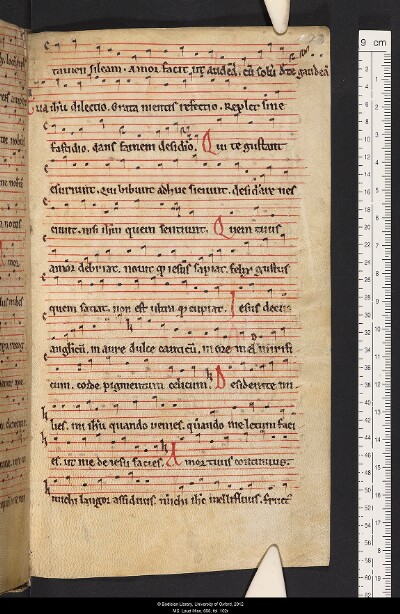 tamen sileam. Amor facit, ut audeā, cū solū d te gaudeā
Tua ihu dilectio. Grata mentis refectio. Replet sine
fastidio. dans famem desidio. Qui te gustant
esuriunt. qui bibunt adhuc sitiunt. desidare nes
ciunt. nisi ihm quem sentiunt. Quem tuus
amor debriat. nouit q iesus sapiat. felix gustus
quem saciat. non est ultra q cupiat. Iesus decus
anglicū. in aure dulce canticū. in ore mel mirifi
cum. corde pigmentum celicum. Desidero te mi
lies. mi ihu quando uenies. quando me letum faci
es. ut me de iesu facies. Amor tuus continuus.
michi langor assiduus. michi ihc mellifluus. fruct
9 cm
© Bodleian Library, University of Oxford, 2012